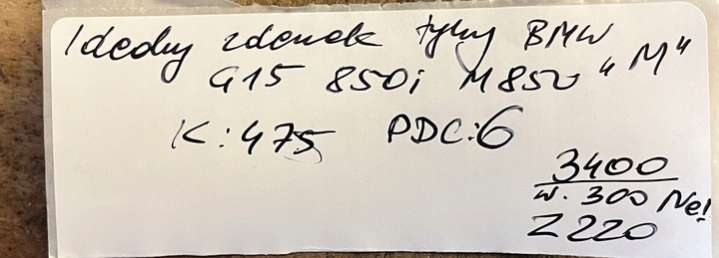 Idealny zderzak tylny BMW
G15 850i M850 "M"
K:475 PDC:6
3400
w. 300 Ne!
Z 220